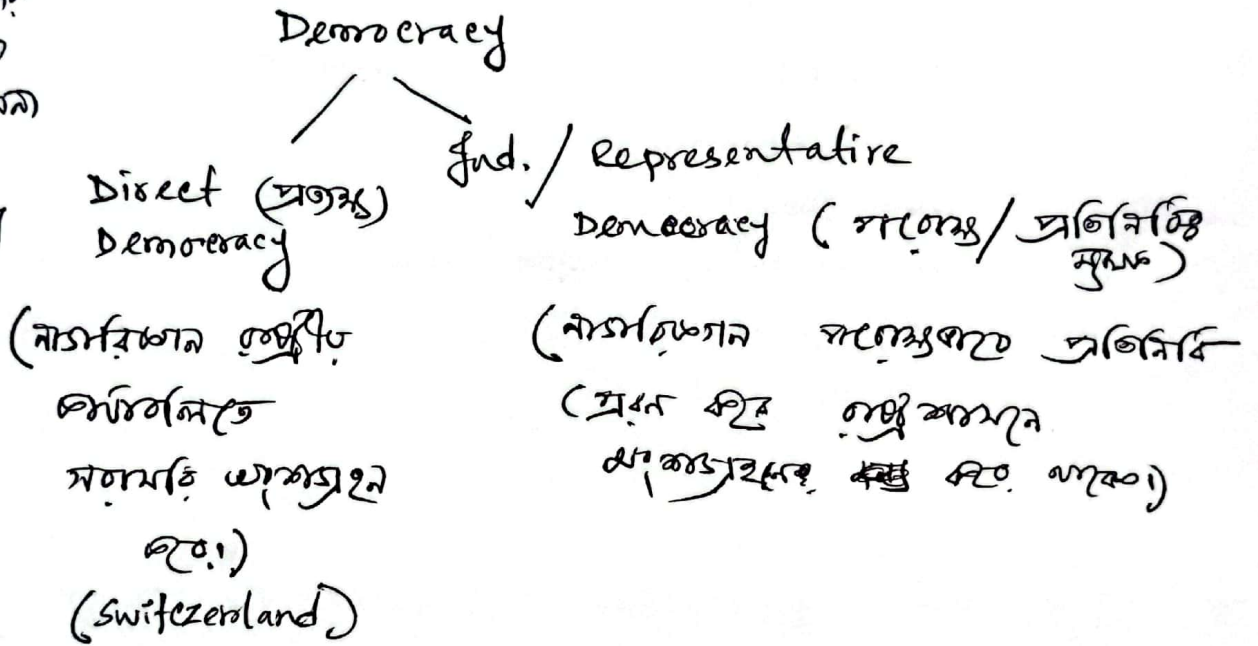 Democracy
Direct (প্রত্যক্ষ)
Democracy
(নাগরিকগন রাষ্ট্রীয়
কার্যাবলিতে
সরাসরি অংশগ্রহন
করে।)
(Switzerland)
Ind. / Representative
Democracy (পরোক্ষ/ প্রতিনিধিত্ব
মূলক)
(নাগরিকগন পরোক্ষভাবে প্রতিনিধি
প্রেরন করে রাষ্ট্র শাসনে
অংশগ্রহনের করে থাকে।)